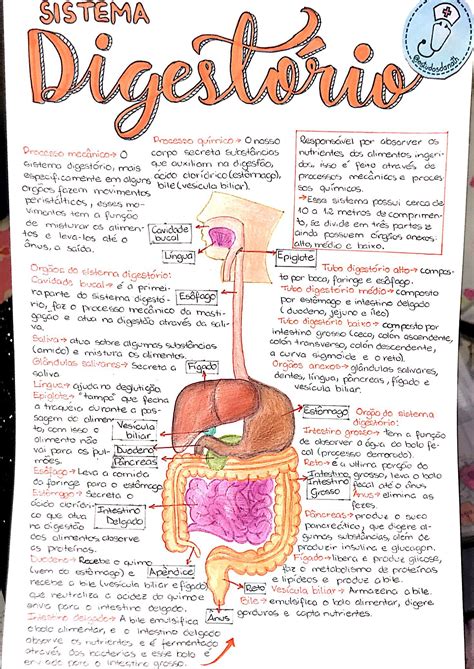 SISTEMA
Digestório
@estudosdanath
Processo mecânico → O
sistema digestório, mais
especificamente em alguns
órgãos fazem movimentos
peristálticos, esses mo-
vimentos tem a função
de misturar os alimen-
tos e leva-los até o
ânus, a saída.
Processo químico → O nosso
corpo secreta substâncias
que auxiliam na digestão,
ácido clorídrico (estômago),
bile (vesícula biliar).
Responsável por absorver os
nutrientes dos alimentos ingeri-
dos, isso é feito através de
processos mecânicos e proces-
sos químicos.
→ Esse sistema possui cerca de
10 a 12 metros de comprimen-
to, se divide em três partes e
ainda possuem órgãos anexos.
alto, médio e baixo.
Cavidade
bucal
Língua
Epiglote
Esôfago
Fígado
Vesícula
biliar
Duodeno
Pâncreas
Estômago
Intestino
Delgado
Intestino
Grosso
Apêndice
Reto
Ânus
Orgãos do sistema digestório:
Cavidade bucal → é a primei-
ra parte do sistema digestó-
rio, faz o processo mecânico da masti-
gação e atua na digestão através da sali-
va.
Saliva → atua sobre algumas substâncias
(amido) e mistura os alimentos.
Glândulas salivares → Secreta a
saliva
Língua → ajuda na deglutição
Epiglote → "tampa" que fecha
a traqueia durante a pas-
sagem do alimen-
to, com isso o
alimento não
vai para os pul-
mões.
Esôfago → Leva a comida
da faringe para o estômago
Estômago → Secreta o
ácido clorídri-
co que atua
na digestão
dos alimentos
as proteínas.
Duodeno → Recebe o quimo
(vem do estômago) e
recebe a bile (vesícula biliar e fígado)
que neutraliza a acidez do quimo e
envia para o intestino delgado.
Intestino delgado → A bile emulsifica
o bolo alimentar, e o intestino delgado
absorve os nutrientes e é fermentado
através das bactérias e esse bolo é
enviado para o intestino grosso.
Tubo digestório alto → compos-
to por boca, faringe e esôfago.
Tubo digestório médio → composto
por estômago e intestino delgado
(duodeno, jejuno e íleo)
Tubo digestório baixo → composto por
intestino grosso (ceco, cólon ascendente,
colón transverso, colón descendente,
a curva sigmoide e o reto).
Órgãos anexos → glândulas salivares,
dentes, língua, pâncreas, fígado e
vesícula biliar.
Orgão do sistema
digestório:
Intestino grosso → tem a função
de absorver a água do bolo fe-
cal (processo demorado).
Reto → é a ultima porção do
intestino grosso, leva o bolo
fecal até o ânus
Ânus → elimina as
fezes.
Pâncreas → produz o suco
pancreático, que digere al-
gumas substâncias, além de
produzir insulina e glucagon.
Fígado → libera e produz glicose,
faz o metabolismo de proteínas
e lipídeos e produz a bile.
Vesícula biliar → Armazena a bile.
Bile → emulsifica o bolo alimentar, digere
gorduras e capta nutrientes.